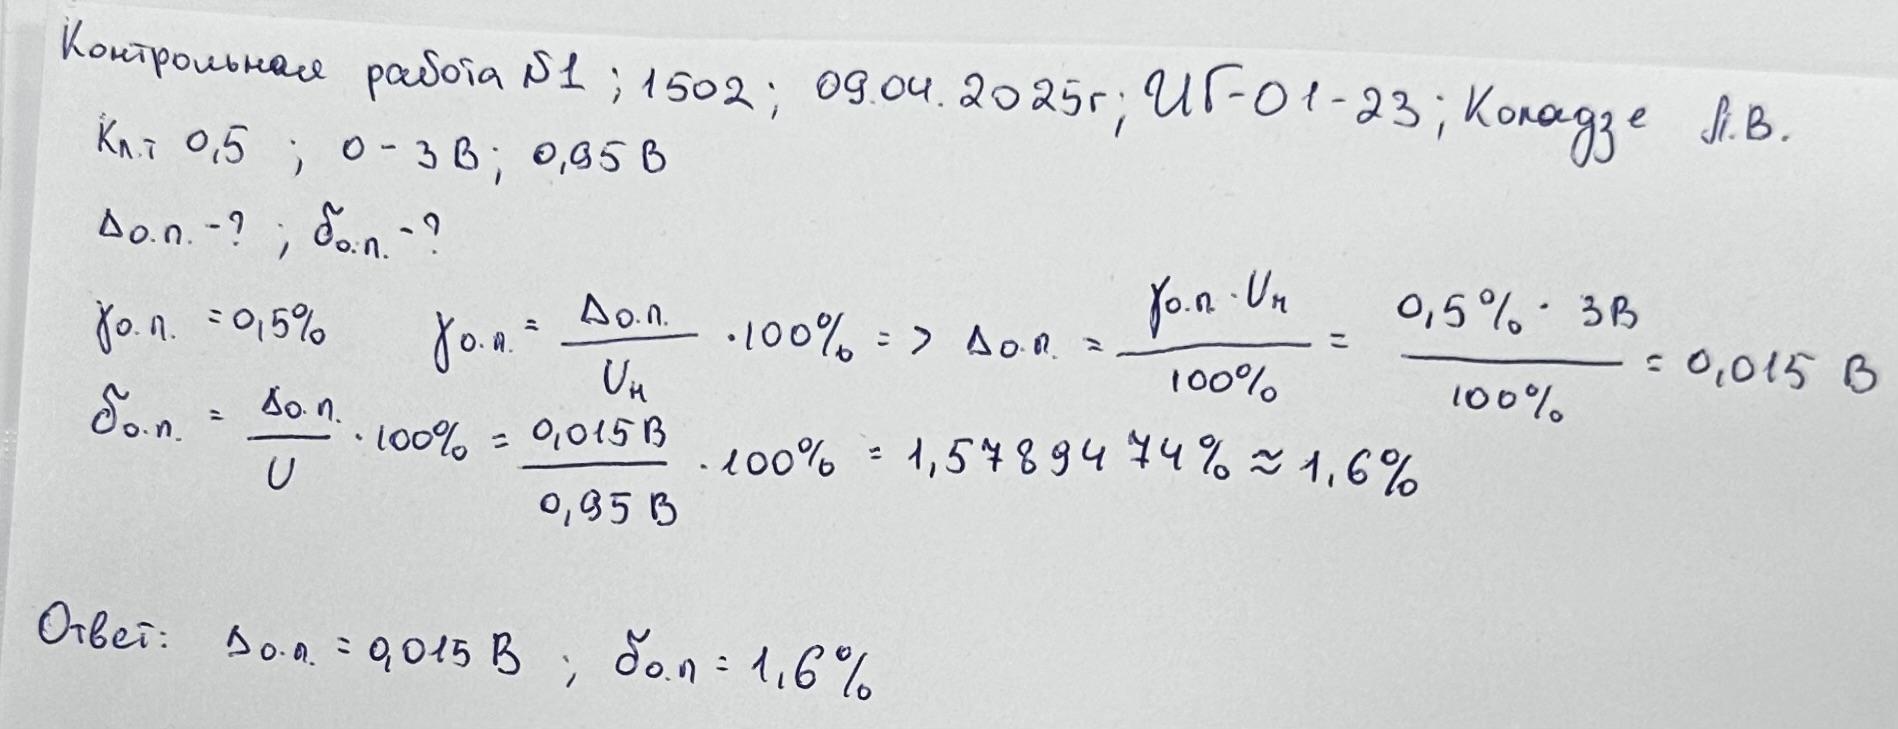 Контрольная работа №1 ; 1502 ; 09.04.2025г ; ИГ-01-23 ; Коладзе Л.В.
Кл.т 0,5 ; 0 - 3 В ; 0,95 В
Δо.п. - ? ; δо.п. - ?
γо.п. = 0,5% γо.п. = Δо.п. / Uн · 100% => Δо.п. = γо.п. · Uн / 100% = 0,5% · 3В / 100% = 0,015 В
δо.п. = Δо.п. / U · 100% = 0,015 В / 0,95 В · 100% = 1,57894 74% ≈ 1,6%
Ответ: Δо.п. = 0,015 В ; δо.п = 1,6%